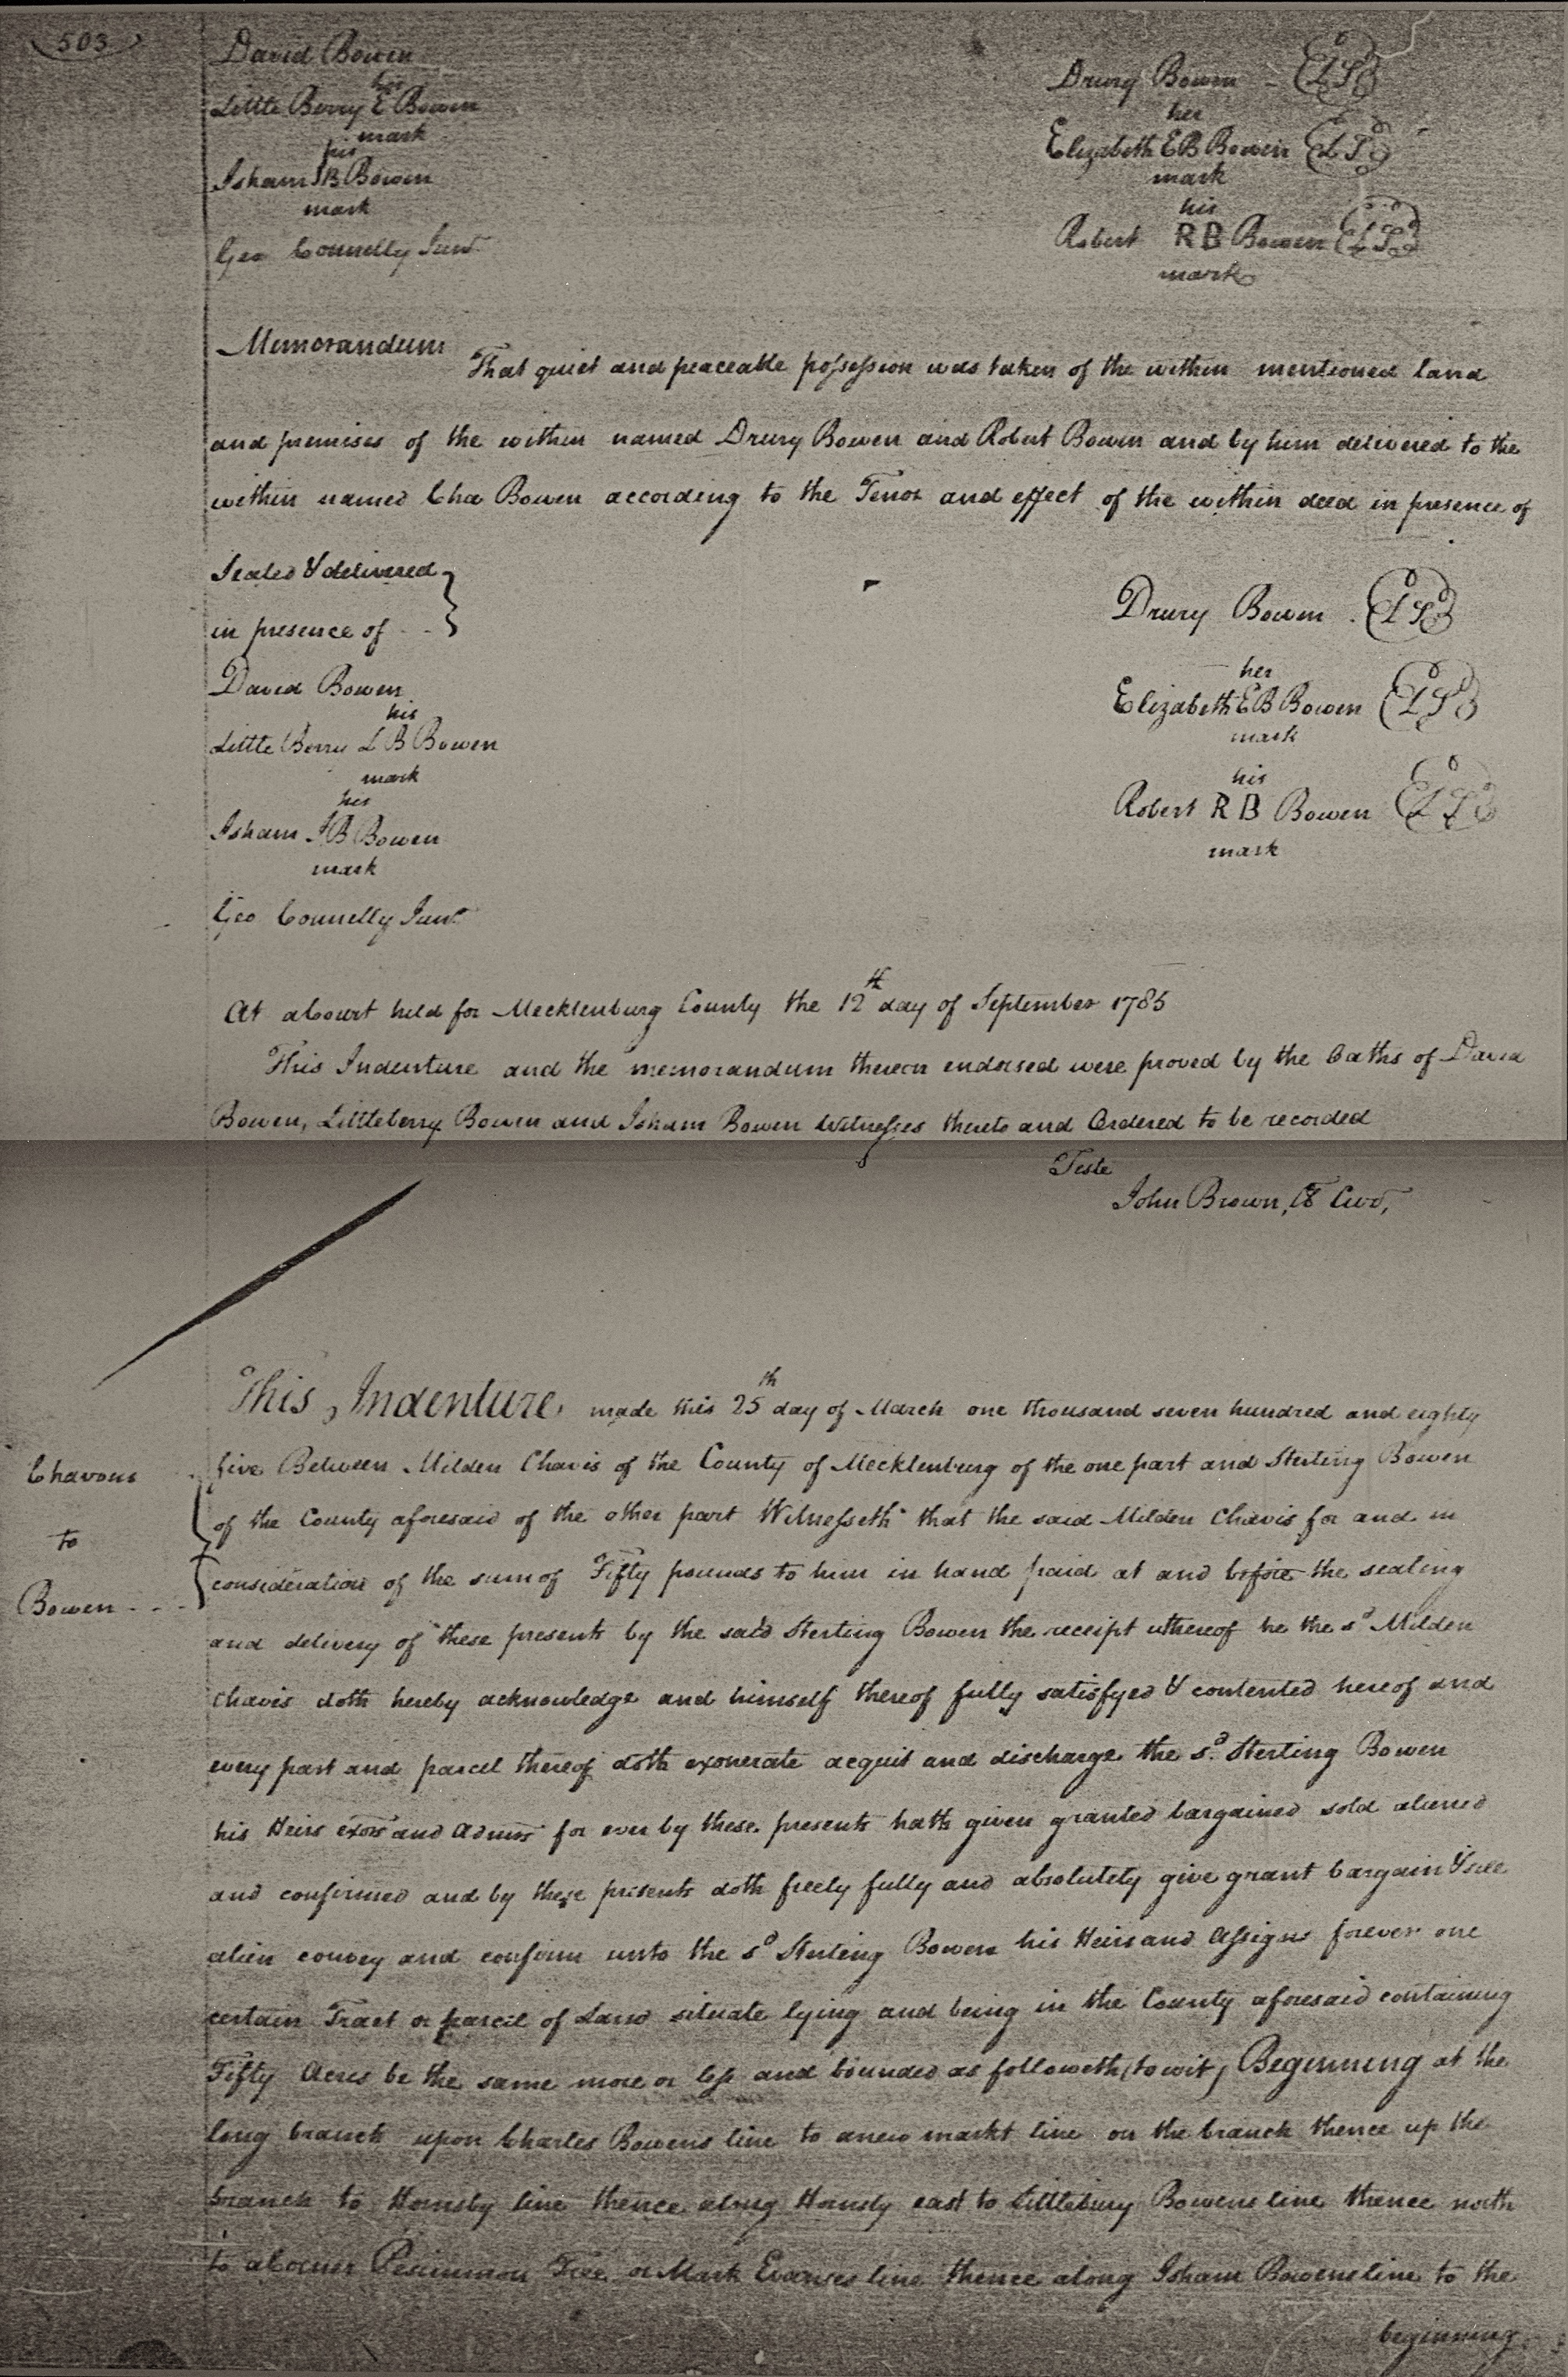 503
David Bowen
his
Little Berry E Bowen
mark
his
Isham IB Bowen
mark
Geo Connelly Junr
Drury Bowen LS
her
Elizabeth EB Bowen LS
mark
his
Robert RB Bowen LS
mark
Memorandum That quiet and peaceable possession was taken of the within mentioned land
and premises of the within named Drury Bowen and Robert Bowen and by him delivered to the
within named Cha Bowen according to the Tenor and effect of the within deed in presence of
Sealed & delivered
in presence of
David Bowen
his
Little Berry LB Bowen
mark
his
Isham IB Bowen
mark
Geo Connelly Junr
Drury Bowen LS
her
Elizabeth EB Bowen LS
mark
his
Robert RB Bowen LS
mark
At a Court held for Mecklenburg County the 12th day of September 1785
This Indenture and the memorandum thereon endorsed were proved by the Oaths of David
Bowen, Littleberry Bowen and Isham Bowen Witnesses thereto and Ordered to be recorded
Teste
John Brown, Cl Cur,
Chavous
to
Bowen
This Indenture made this 25th day of March one thousand seven hundred and eighty
five Between Milden Chavis of the County of Mecklenburg of the one part and Sterling Bowen
of the County aforesaid of the other part Witnesseth that the said Milden Chavis for and in
consideration of the sum of Fifty pounds to him in hand paid at and before the sealing
and delivery of these presents by the said Sterling Bowen the receipt whereof he the sd Milden
Chavis doth hereby acknowledge and himself thereof fully satisfyed & contented hereof and
every part and parcel thereof doth exonerate acquit and discharge the sd. Sterling Bowen
his Heirs exors and Admrs for ever by these presents hath given granted bargained sold aliened
and confirmed and by these presents doth freely fully and absolutely give grant bargain & sell
alien convey and confirm unto the sd Sterling Bowen his Heirs and Assigns forever one
certain Tract or parcel of Land situate lying and being in the County aforesaid containing
Fifty Acres be the same more or less and bounded as followeth (to wit) Beginning at the
long branch upon Charles Bowens line to a new markt line on the branch thence up the
branch to Hornsby line thence along Hornsby east to Littlebury Bowens line thence north
to a Corner Pesimmon Tree on Mark Evanses line thence along Isham Bowens line to the
beginning